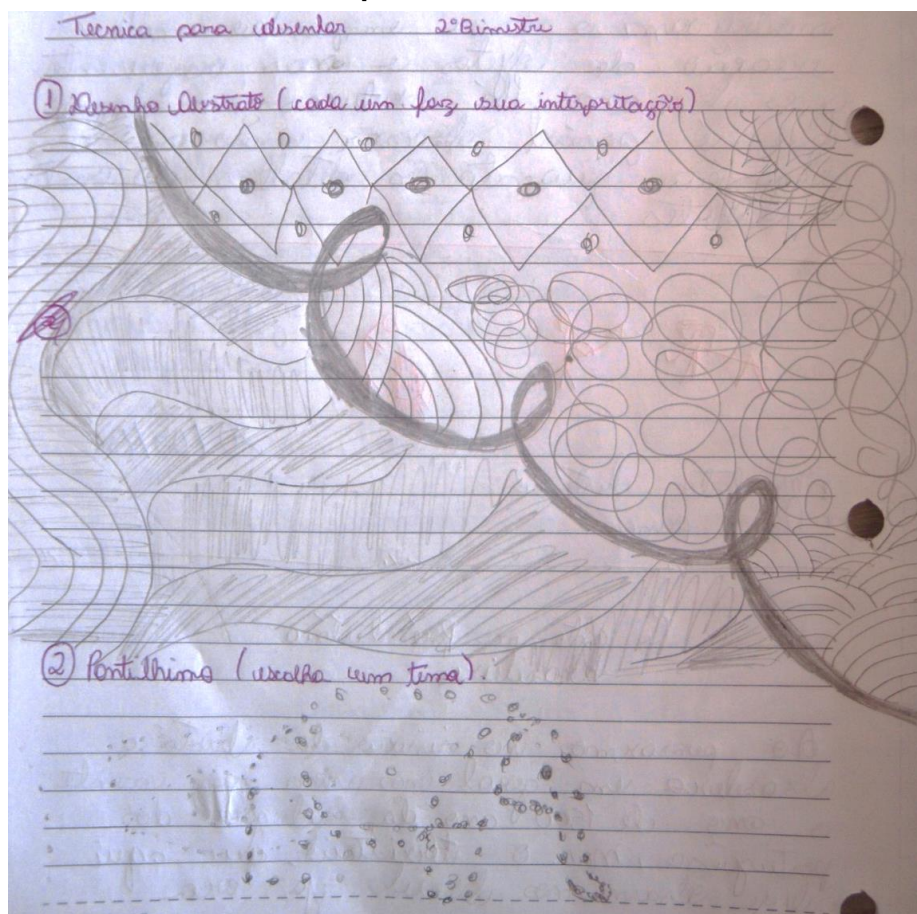 Tecnica para desenhar 2º Bimestre
① Desenho Abstrato (cada um faz sua interpretação)
② Pontilhismo (escolha um tema).